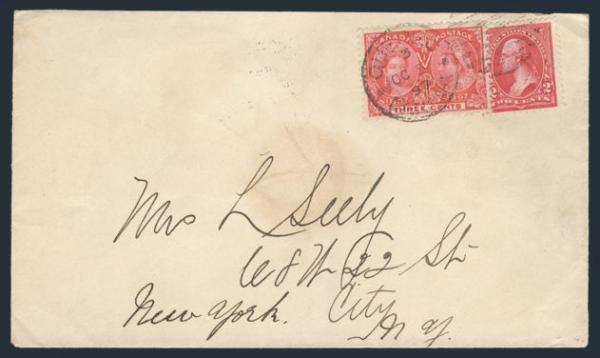 CANADA POSTAGE
THREE CENTS
TWO CENTS
2 2
OC
97
Mrs L Seely
68 W 22 St.
New York. City
N Y.